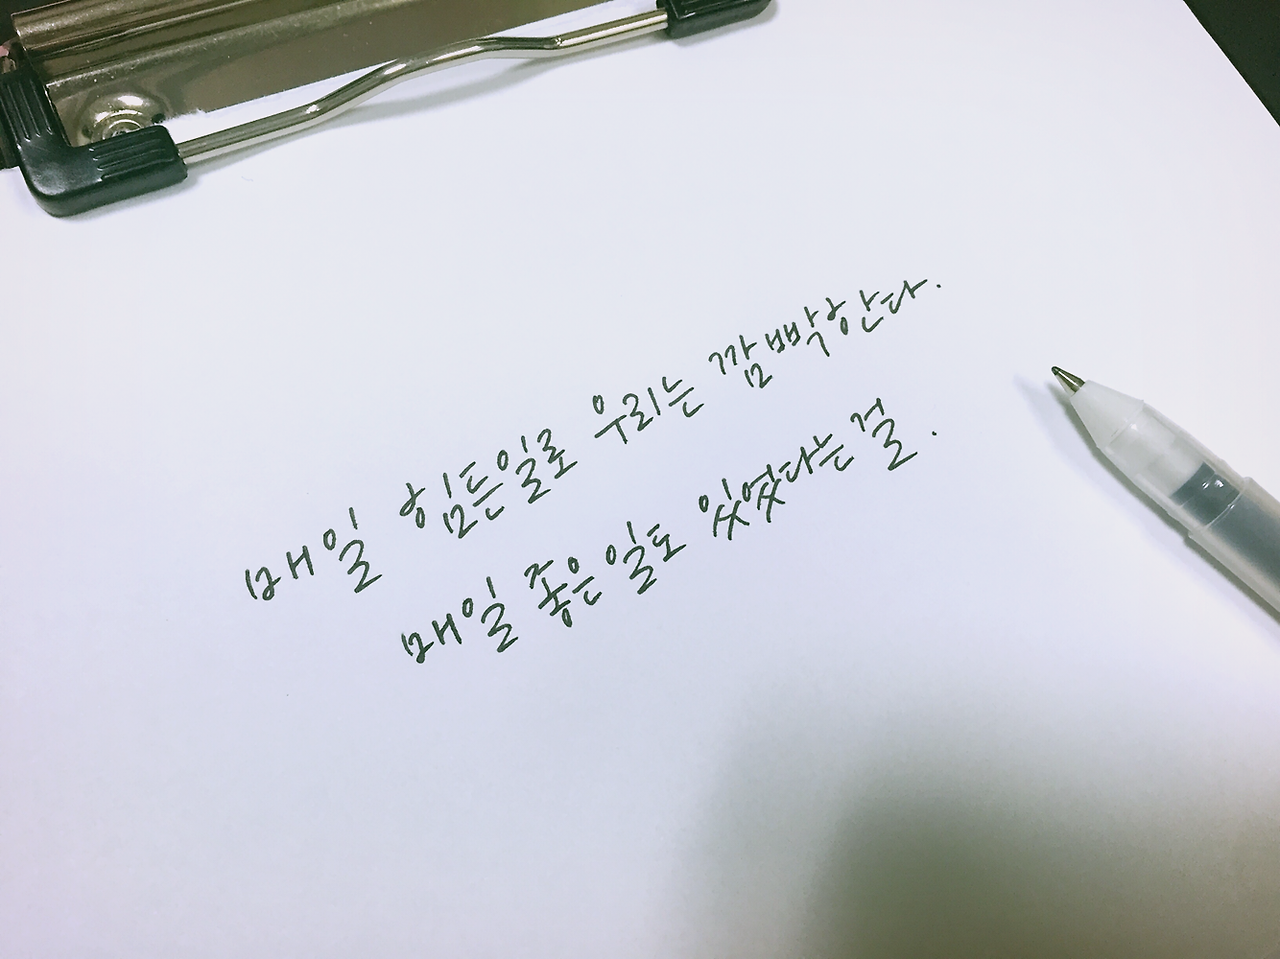 매일 힘든일로 우리는 깜빡한다.
매일 좋은일도 있었다는 걸.